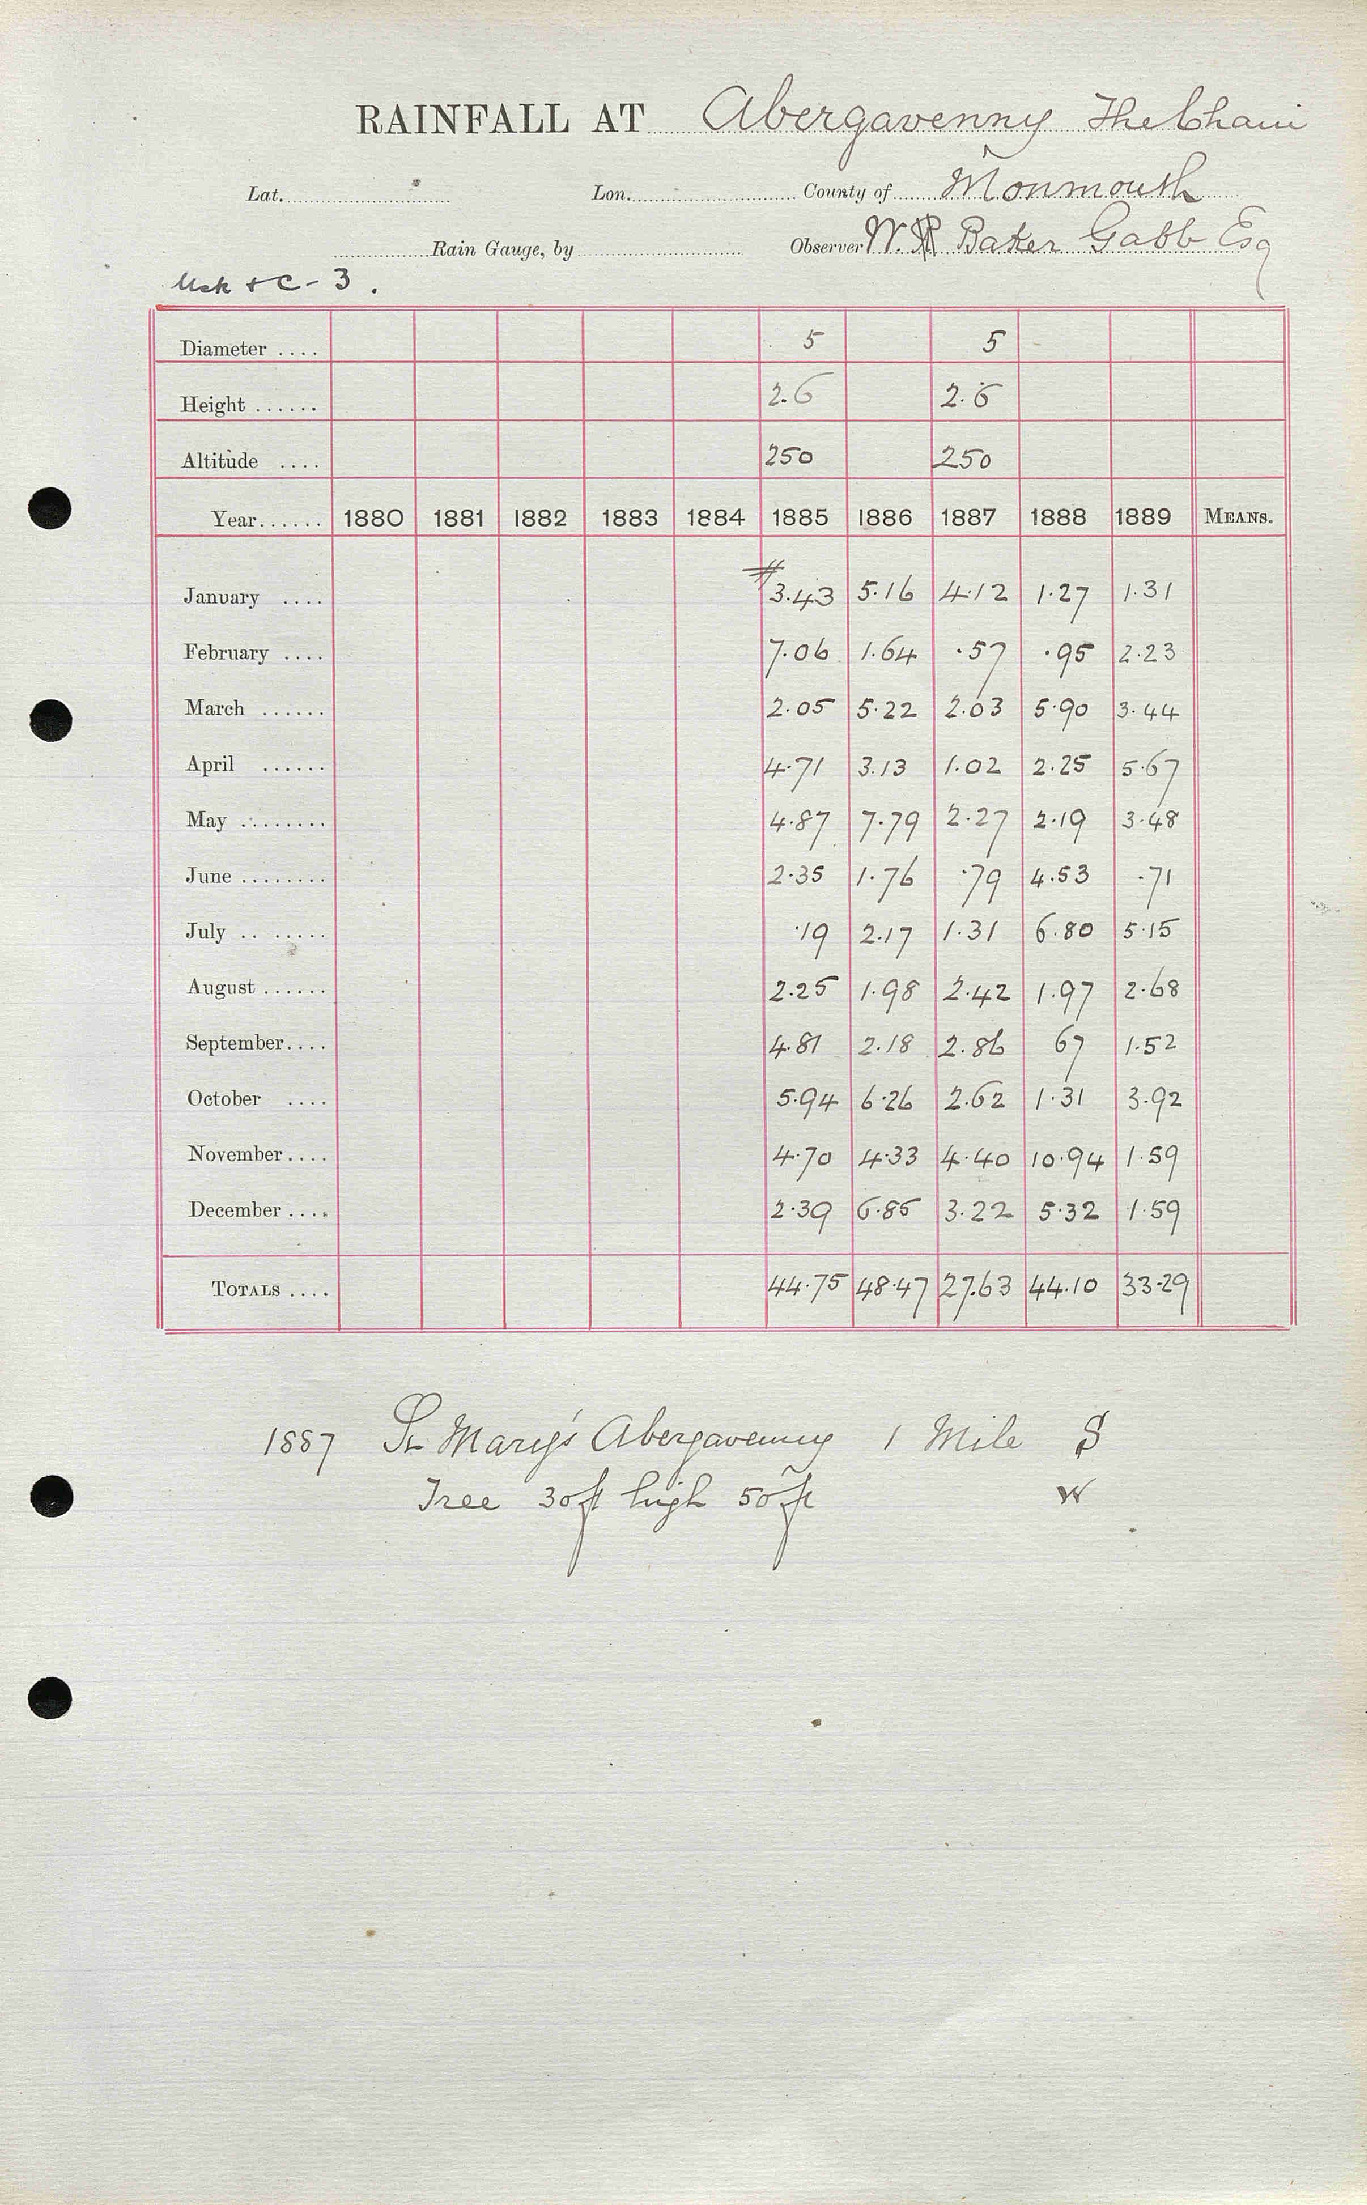 RAINFALL AT Abergavenny The Chain
Lat. Lon. County of Monmouth
Rain Gauge, by Observer W. Baker Gabb Esq
Usk & C - 3.
Diameter .... 5 5
Height ...... 2.6 2.6
Altitude .... 250 250
Year...... 1880 1881 1882 1883 1884 1885 1886 1887 1888 1889 MEANS.
January .... # 3.43 5.16 4.12 1.27 1.31
February .... 7.06 1.64 .57 .95 2.23
March ...... 2.05 5.22 2.03 5.90 3.44
April ...... 4.71 3.13 1.02 2.25 5.67
May ........ 4.87 7.79 2.27 2.19 3.48
June ........ 2.35 1.76 .79 4.53 .71
July .. ..... .19 2.17 1.31 6.80 5.15
August ...... 2.25 1.98 2.42 1.97 2.68
September.... 4.81 2.18 2.86 67 1.52
October .... 5.94 6.26 2.62 1.31 3.92
November.... 4.70 4.33 4.40 10.94 1.59
December .... 2.39 6.85 3.22 5.32 1.59
TOTALS .... 44.75 48.47 27.63 44.10 33.29
1887 St Mary's Abergavenny 1 Mile S
Tree 30ft high 50ft W